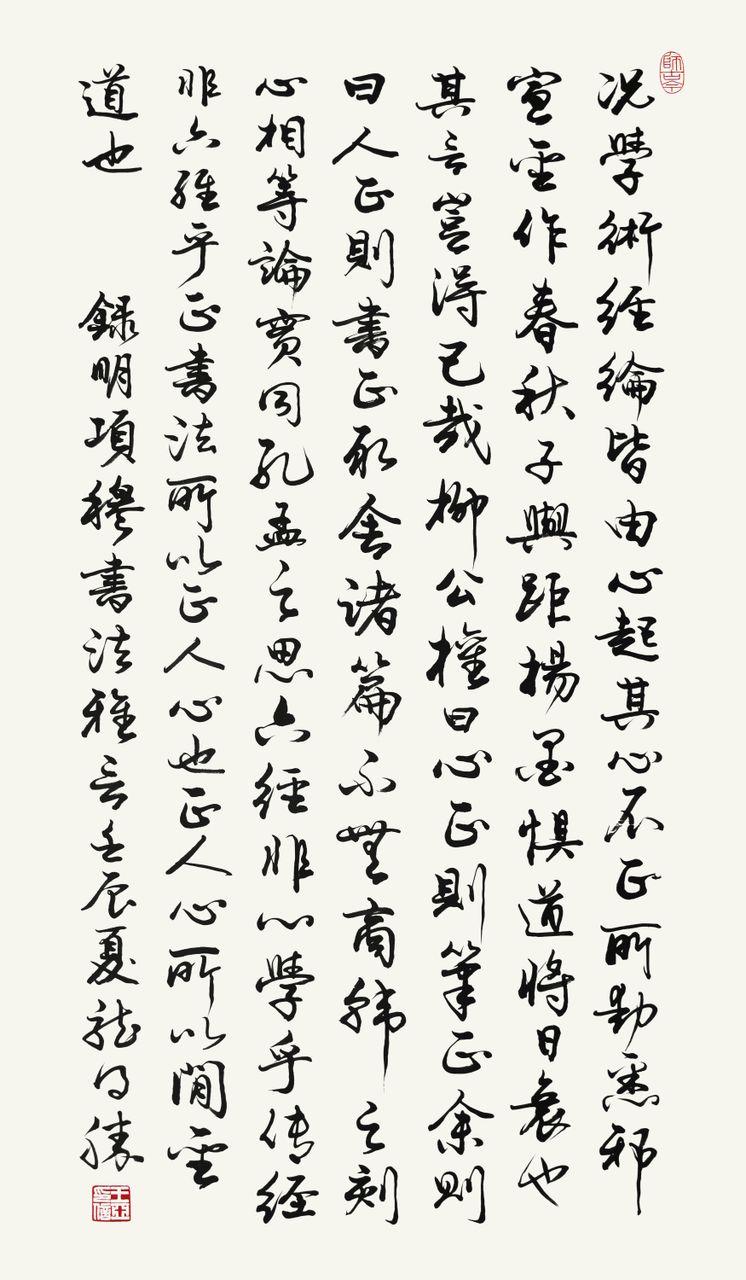 况學術經綸皆由心起其心不正所動悉邪
宣聖作春秋子輿距揚墨懼道將日衰也
其言豈得已哉柳公權曰心正則筆正余則
曰人正則書正取舍諸篇不無商韓之刻
心相等論實同孔孟之思六經非心學乎傳經
非六經乎正書法所以正人心也正人心所以閑聖
道也 錄明項穆書法雅言壬辰夏龍勝